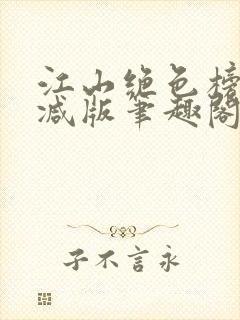 江山绝色榜
减版笔趣阁
子不言永